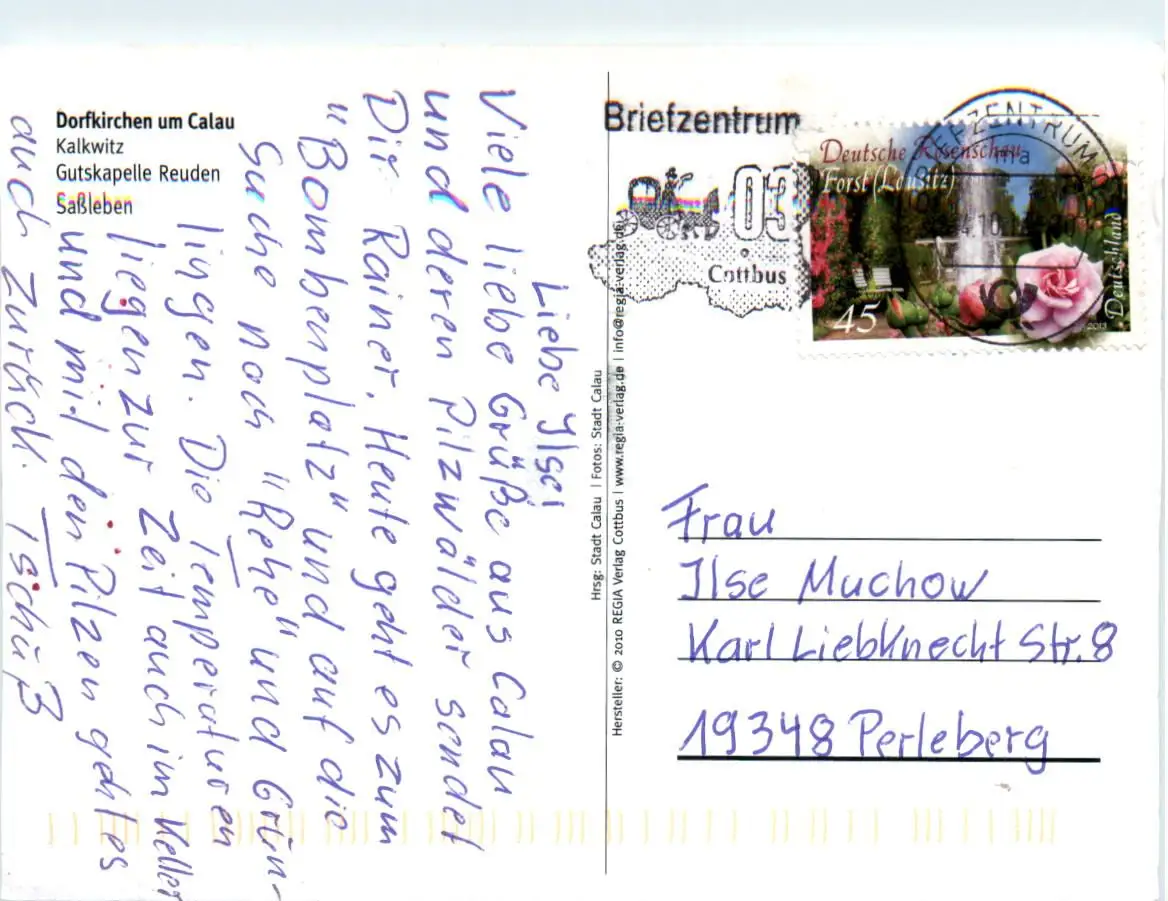 Dorfkirchen um Calau
Kalkwitz
Gutskapelle Reuden
Saßleben
Liebe Ilse!
Viele liebe Grüße aus Calau
und deren Pilzwälder sendet
Dir Rainer. Heute geht es zum
"Bombenplatz" und auf die
Suche noch "Rehe" und Grün-
lingen. Die Temperaturen
liegen zur Zeit auch im Keller
und mit den Pilzen geht es
auch zurück. Tschüß
Hrsg: Stadt Calau | Fotos: Stadt Calau
Hersteller: © 2010 REGIA Verlag Cottbus | www.regia-verlag.de | info@regia-verlag.de
Briefzentrum
03
Cottbus
BRIEFZENTRUM
Deutsche Rosenschau
Forst (Lausitz)
45
Deutschland
2013
Frau
Ilse Muchow
Karl Liebknecht Str. 8
19348 Perleberg